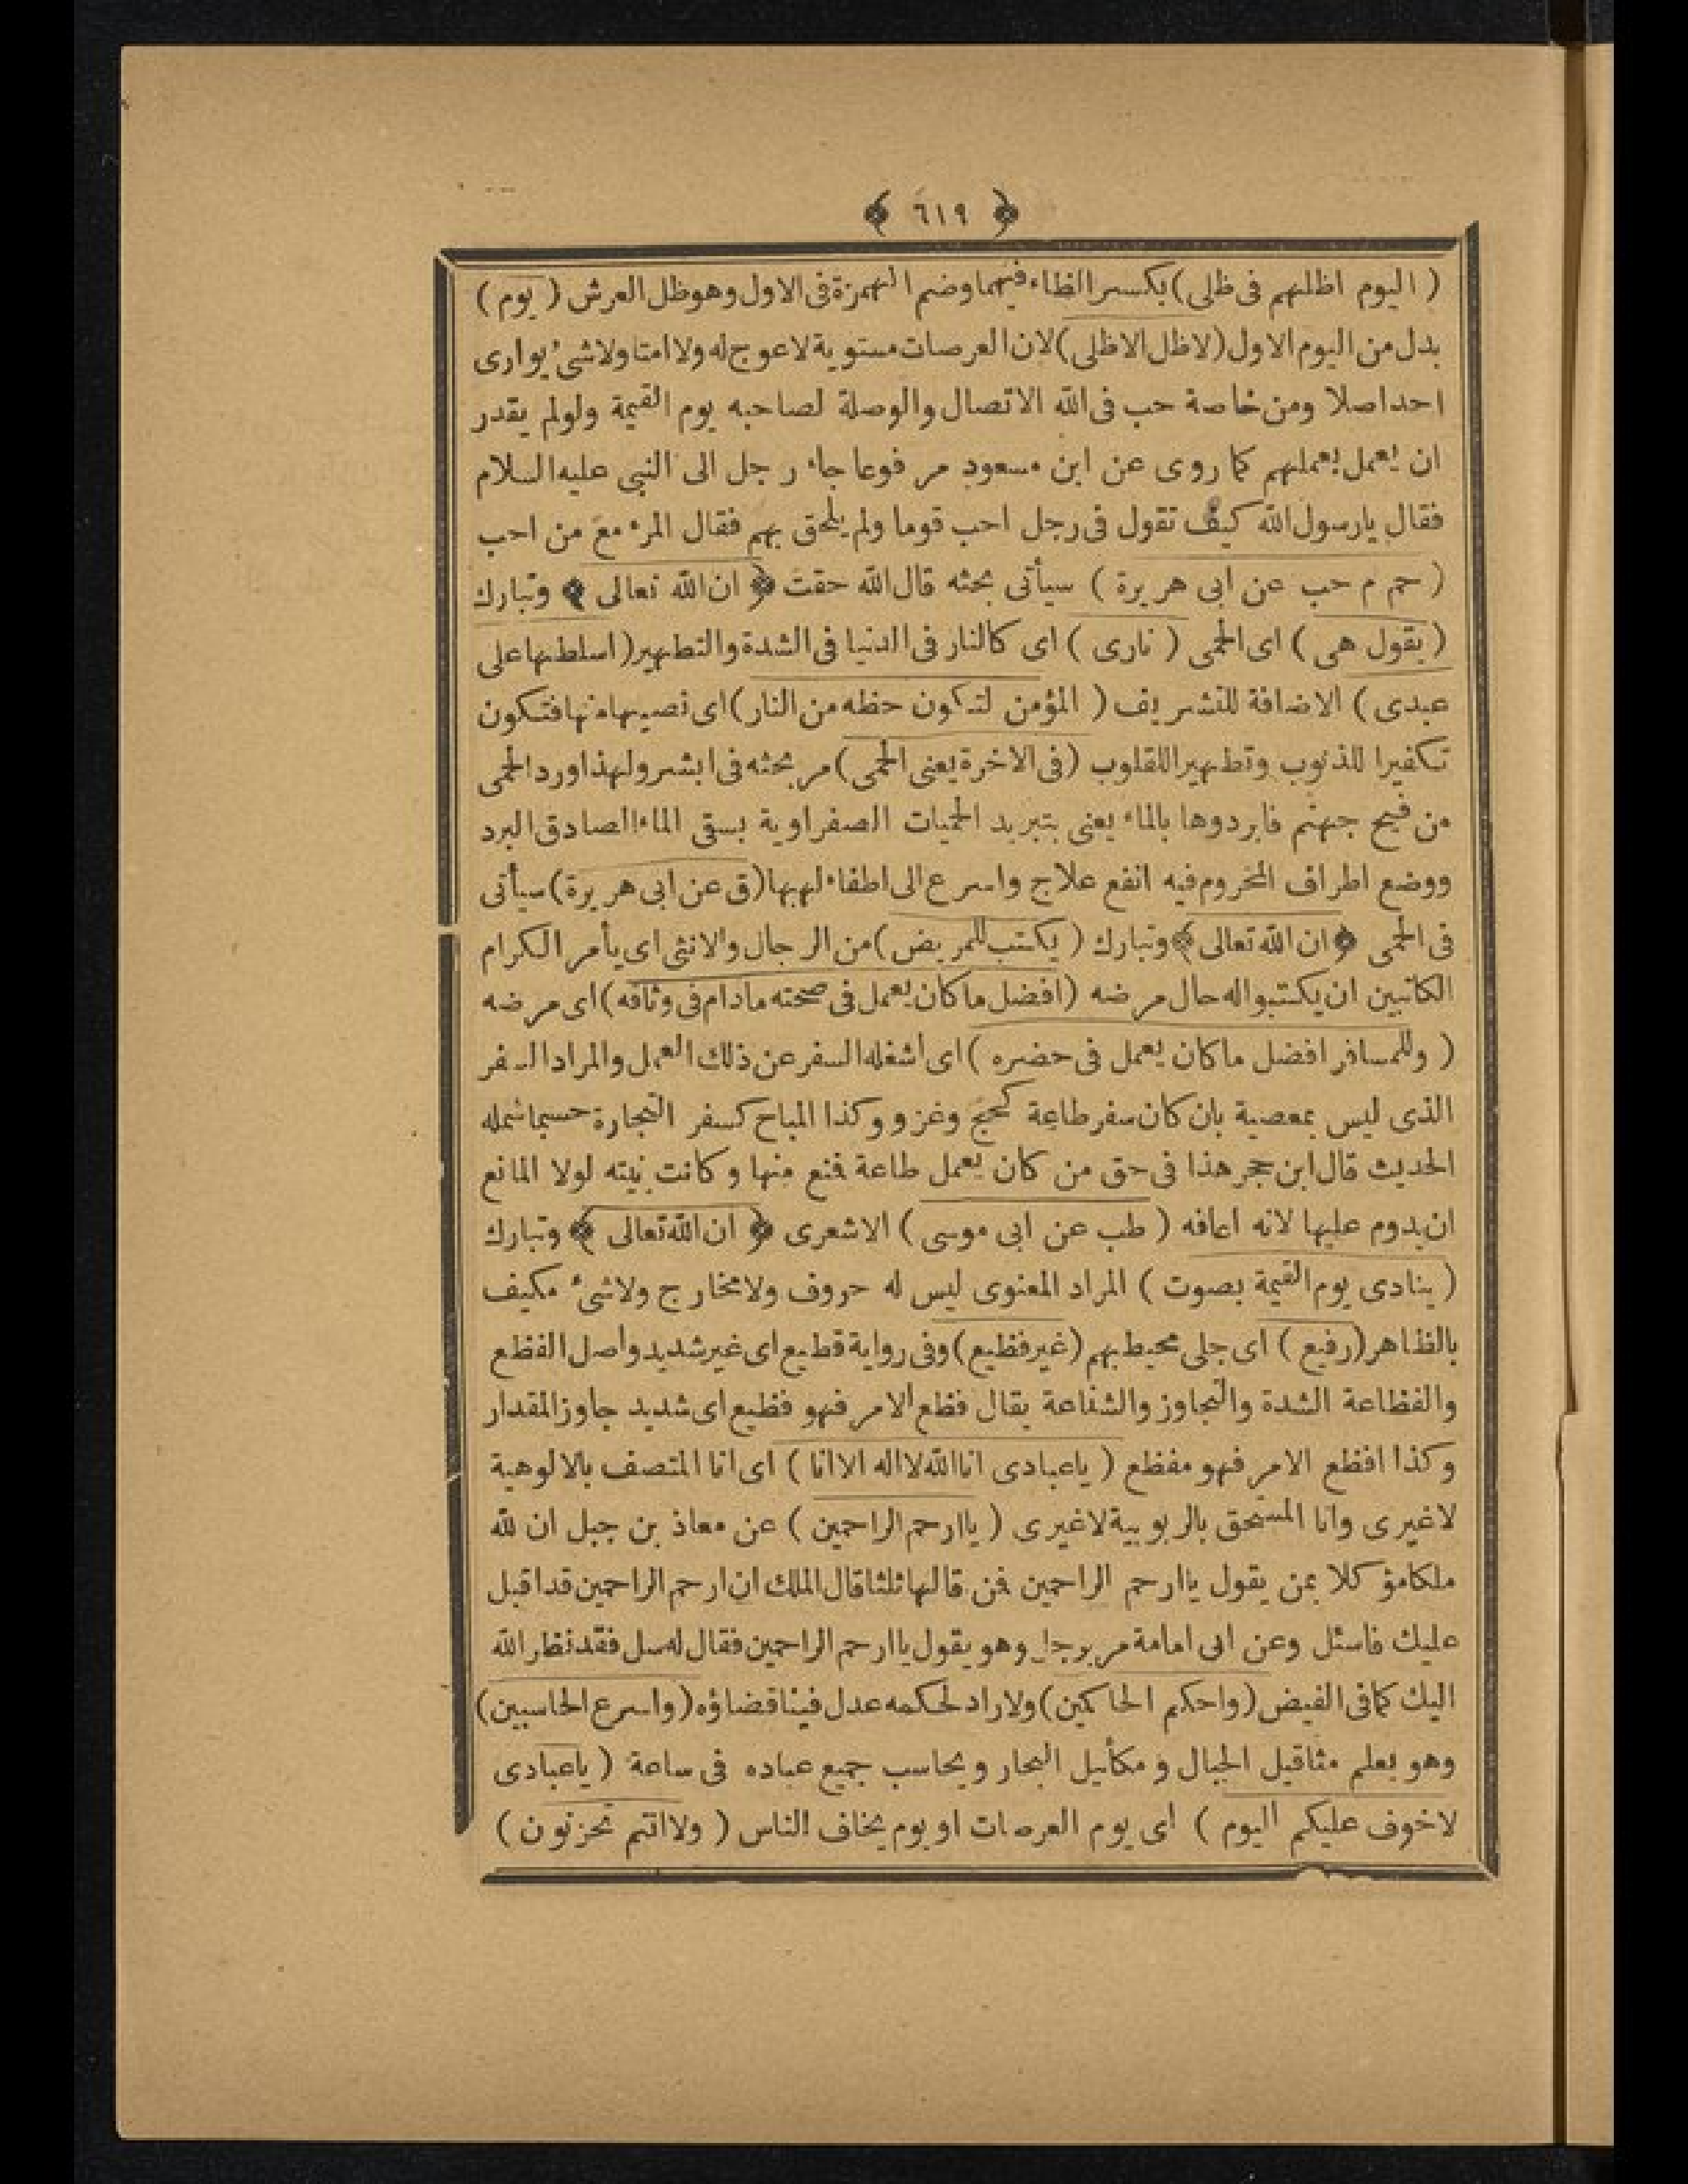 ﴿ ٦١٩ ﴾
( اليوم اظلهم فى ظلى ) بكسر الظاء فيهما وضم الهمزة فى الاول وهو ظل العرش ( يوم )
بدل من اليوم الاول ( لاظل الاظلى ) لان العرصات مستوية لاعوج له ولا امتا ولا شئ يوارى
احدا صلا ومن خاصة حب فى الله الاتصال والوصلة لصاحبه يوم القيمة ولولم يقدر
ان يعمل بعملهم كما روى عن ابن مسعود مرفوعا جاء رجل الى النبى عليه السلام
فقال يارسول الله كيف تقول فى رجل احب قوما ولم يلحق بهم فقال المرء مع من احب
( حم م حب عن ابى هريرة ) سيأتى بحثه قال الله حقت ﴿ ان الله تعالى ﴾ وتبارك
( يقول هى ) اى الحمى ( نارى ) اى كالنار فى الدنيا فى الشدة والتطهير ( اسلطها على
عبدى ) الاضافة للتشريف ( المؤمن لتكون حظه من النار ) اى نصيبها منها فتكون
تكفيرا للذنوب وتطهيرا للقلوب ( فى الاخرة يعنى الحمى ) مر بحثه فى ابشر ولهذا ورد الحمى
من فيح جهنم فابردوها بالماء يعنى بتبريد الحميات الصفراوية بسقى الماء الصادق البرد
ووضع اطراف المخروم فيه انفع علاج واسرع الى اطفاء لهبها ( ق عن ابى هريرة ) سيأتى
فى الحمى ﴿ ان الله تعالى ﴾ وتبارك ( يكتب للمريض ) من الرجال والانثى اى يأمر الكرام
الكاتبين ان يكتبوا له حال مرضه ( افضل ما كان يعمل فى صحته مادام فى وثاقه ) اى مرضه
( وللمسافر افضل ما كان يعمل فى حضره ) اى اشغله السفر عن ذلك العمل والمراد السفر
الذى ليس بمعصية بان كان سفر طاعة كحج وغزو وكذا المباح كسفر التجارة حسبما شمله
الحديث قال ابن حجر هذا فى حق من كان يعمل طاعة فنع منها وكانت نيته لولا المانع
ان يدوم عليها لانه اعاقه ( طب عن ابى موسى ) الاشعرى ﴿ ان الله تعالى ﴾ وتبارك
( ينادى يوم القيمة بصوت ) المراد المعنوى ليس له حروف ولا مخارج ولا شئ مكيف
بالظاهر ( رفيع ) اى جلى محيط بهم ( غير فظيع ) وفى رواية قطيع اى غير شديد واصل الفظع
والفظاعة الشدة والتجاوز والشناعة يقال فظع الامر فهو فظيع اى شديد جاوز المقدار
وكذا افظع الامر فهو مفظع ( ياعبادى انا الله لا اله الا انا ) اى انا المتصف بالالوهية
لاغيرى وانا المستحق بالربوبية لاغيرى ( ياارحم الراحمين ) عن معاذ بن جبل ان لله
ملكا مؤكلا بمن يقول ياارحم الراحمين فمن قالها ثلثا قال الملك ان ارحم الراحمين قد اقبل
عليك فاسئل وعن ابى امامة مر برجل وهو يقول ياارحم الراحمين فقال له سل فقد نظر الله
اليك كما فى الفيض ( واحكم الحاكمين ) ولا راد لحكمه عدل فينا قضاؤه ( واسرع الحاسبين )
وهو يعلم مثاقيل الجبال و مكأئيل البحار ويحاسب جميع عباده فى ساعة ( ياعبادى
لاخوف عليكم اليوم ) اى يوم العرصات او يوم يخاف الناس ( ولا انتم تحزنون )